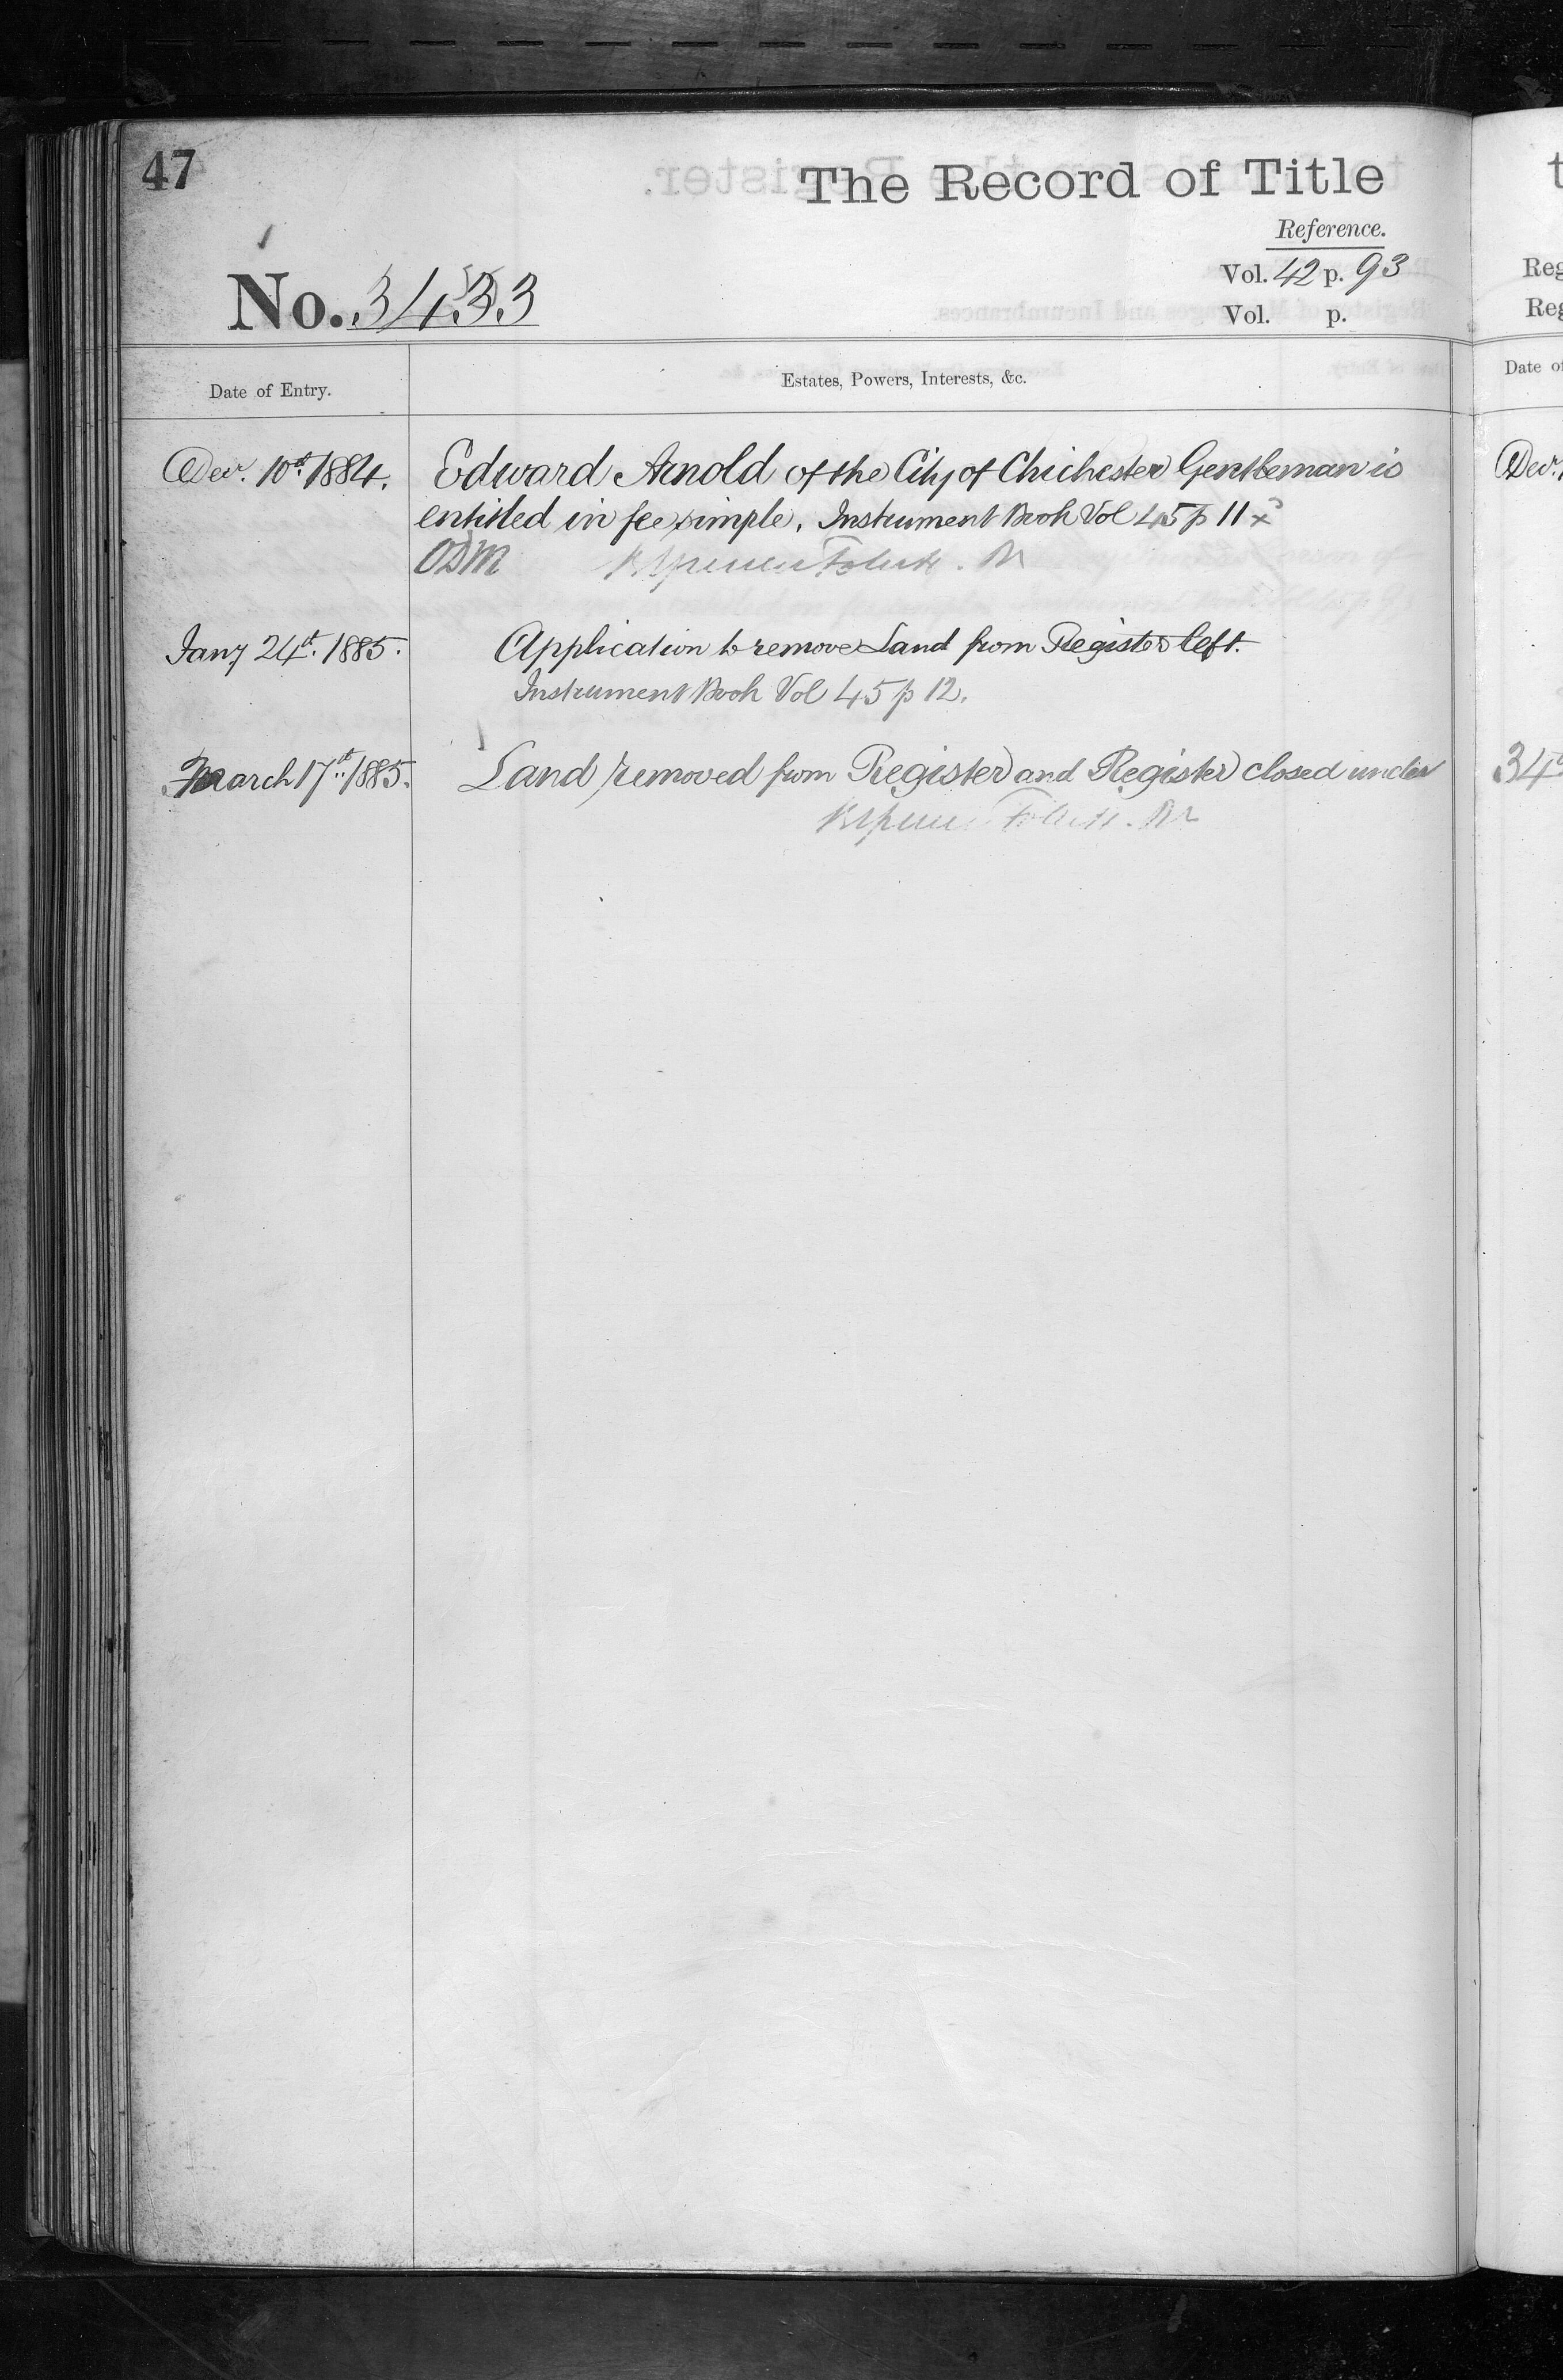 47
The Record of Title
Reference.
Vol. 42 p. 93
No. 3433
Vol. p.
Date of Entry.
Estates, Powers, Interests, &c.
Decr. 10th 1884.
Edward Arnold of the City of Chichester Gentleman is
entitled in fee simple. Instrument Book Vol 45 p 11
ODM
Jany 24th. 1885.
Application to remove Land from Register left.
Instrument Book Vol 45 p 12.
March 17th 1885.
Land removed from Register and Register closed under
Reg
Reg
Date of
Decr.
34